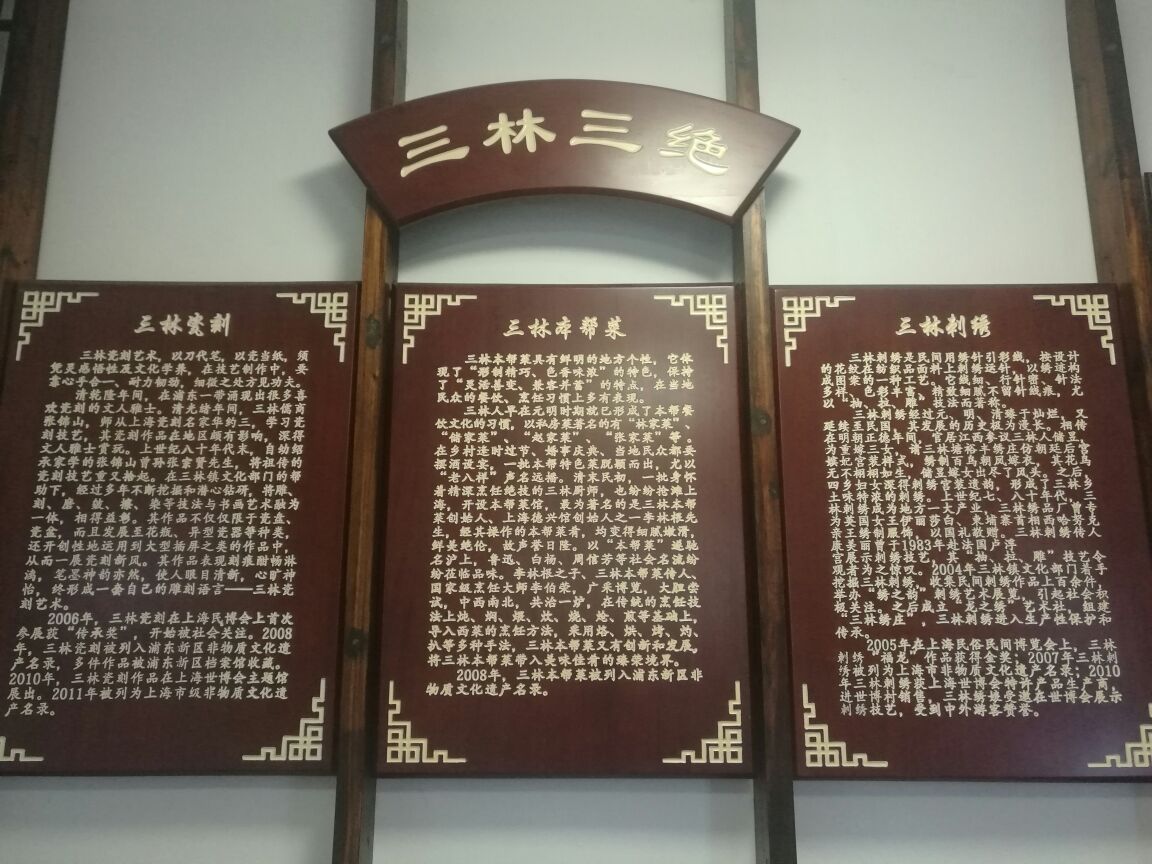 三林三绝
三林瓷刻
三林瓷刻艺术，以刀代笔，以瓷当纸，须
凭灵感悟性及文化学养，在技艺制作中，要
靠心手合一、耐力韧劲，细微之处方见功夫。
清乾隆年间，在浦东一带涌现出很多喜
欢瓷刻的文人雅士。清光绪年间，三林儒商
张锦山，师从上海瓷刻名家华约三，学习瓷
刻技艺，其瓷刻作品在地区颇有影响，深得
文人雅士赏玩。上世纪八十年代末，自幼绍
承家学的张锦山曾孙张宗贤先生，将祖传的
瓷刻技艺重又拾起。在三林镇文化部门的帮
助下，经过多年不断挖掘和潜心钻研，将雕、
刻、磨、皴、擦、染等技法与书画艺术融为
一体，相得益彰。其作品不仅仅限于瓷盘、
瓷盆，而且发展至花瓶、开型瓷器等种类，
还开创性地运用到大型插屏之类的作品中，
从而一展瓷刻新风。其作品表现刻痕酣畅淋
漓，笔墨神韵亦然，使人眼目清新，心旷神
怡，终形成一套自己的雕刻语言——三林瓷
刻艺术。
2006年，三林瓷刻在上海民博会上首次
参展获“传承奖”，开始被社会关注。2008
年，三林瓷刻被列入浦东新区非物质文化遗
产名录，多件作品被浦东新区档案馆收藏。
2010年，三林瓷刻作品在上海世博会主题馆
展出。2011年被列为上海市级非物质文化遗
产名录。
三林本帮菜
三林本帮菜具有鲜明的地方个性，它体
现了“形制精巧、色香味浓”的特色，保持
了“灵活善变、兼容并蓄”的特点，在当地
民众的餐饮、烹饪习惯上多有表现。
三林人早在元明时期就已形成了本帮餐
饮文化的习惯，以私房菜著名的有“林家菜”、
“储家菜”、“赵家菜”、“张家菜”等。
在乡村逢时过节、婚事庆典、当地民众都要
摆酒设宴，一批本帮特色菜脱颖而出，尤以
“老八样”声名远播。清末民初，一批身怀
着精深烹饪绝技的三林厨师，也纷纷抢滩上
海，开设本帮菜馆，最为著名的是三林本帮
菜创始人、上海德兴馆创始人之一李林根先
生，经其操作的本帮菜肴，均变得细腻嫩滑，
鲜美绝伦，故声誉日隆。以“本帮菜”遐驰
名沪上，鲁迅、白杨、周信芳等社会名流纷
纷在临品味。李林根之子、三林本帮菜传人、
国家级烹饪大师李伯荣，广采博览，大胆尝
试，中西南北，共治一炉，在传统的烹饪技
法上炖、焖、煨、炊、烧、炝、煎等基础上，
导入西菜的烹饪方法，采用烙、烘、烤、灼、
扒等多种手法，三林本帮菜又有创新和发展，
将三林本帮菜带入美味佳肴的臻荣境界。
2008年，三林本帮菜被列入浦东新区非
物质文化遗产名录。
三林刺绣
三林刺绣是民间用绣针引彩线，按设计
的花纹在纺织品面料上刺绣运针，以绣迹构
成图案的一种工艺。它线细、行针密、针法
多样，色彩丰富，精致细腻不留针线痕，尤
以“抽、拉、雕”技法而著称。
三林刺绣经过元、明、清臻于灿烂，又
延续至民国，其发展的历史极为漫长。相传
在明朝正德年间，官居江西参议三林人储昱，
为重嫁三女，请三林塘裕丰绣庄仿朝廷后宫
嫔妃宫装样式，绣制百鸟朝凤嫁衣，其花鸟
无不栩栩如生，储昱嫁女出尽了风头。之后，
四乡妇女深得刺绣宫菜道韵，形成了三林乡
土味特浓的刺绣。上世纪七、八十年代，三
林刺绣成为地方一大产业，三林绣品厂曾专
为英国女王伊丽莎白、柬埔寨首相西哈努克
亲王绣制成服饰，以国礼敬赠。三林刺绣传人
康美丽曾于1983年赴法国卢浮
宫展示了刺绣技艺，“抽、拉、雕”技艺令
观者为之惊叹。2004年三林镇文化部门着手
挖掘“三林刺绣”，收集民间刺绣作品上百余件，
举办“绣之韵”刺绣艺术展览，引起社会积
极关注。之后成立“龙之绣”艺术社，组建
“三林绣庄”，三林刺绣进入生产性保护和
传承。
2005年在上海民俗民间博览会上，三林
刺绣“福龙”作品获得金奖；2007年三林刺
绣被列为上海市非物质文化遗产名录；2010
年三林刺绣获上海世博会特许产品生产商，
进世博村销售，三林绣娘受邀在世博会展示
刺绣技艺，受到中外游客赞誉。